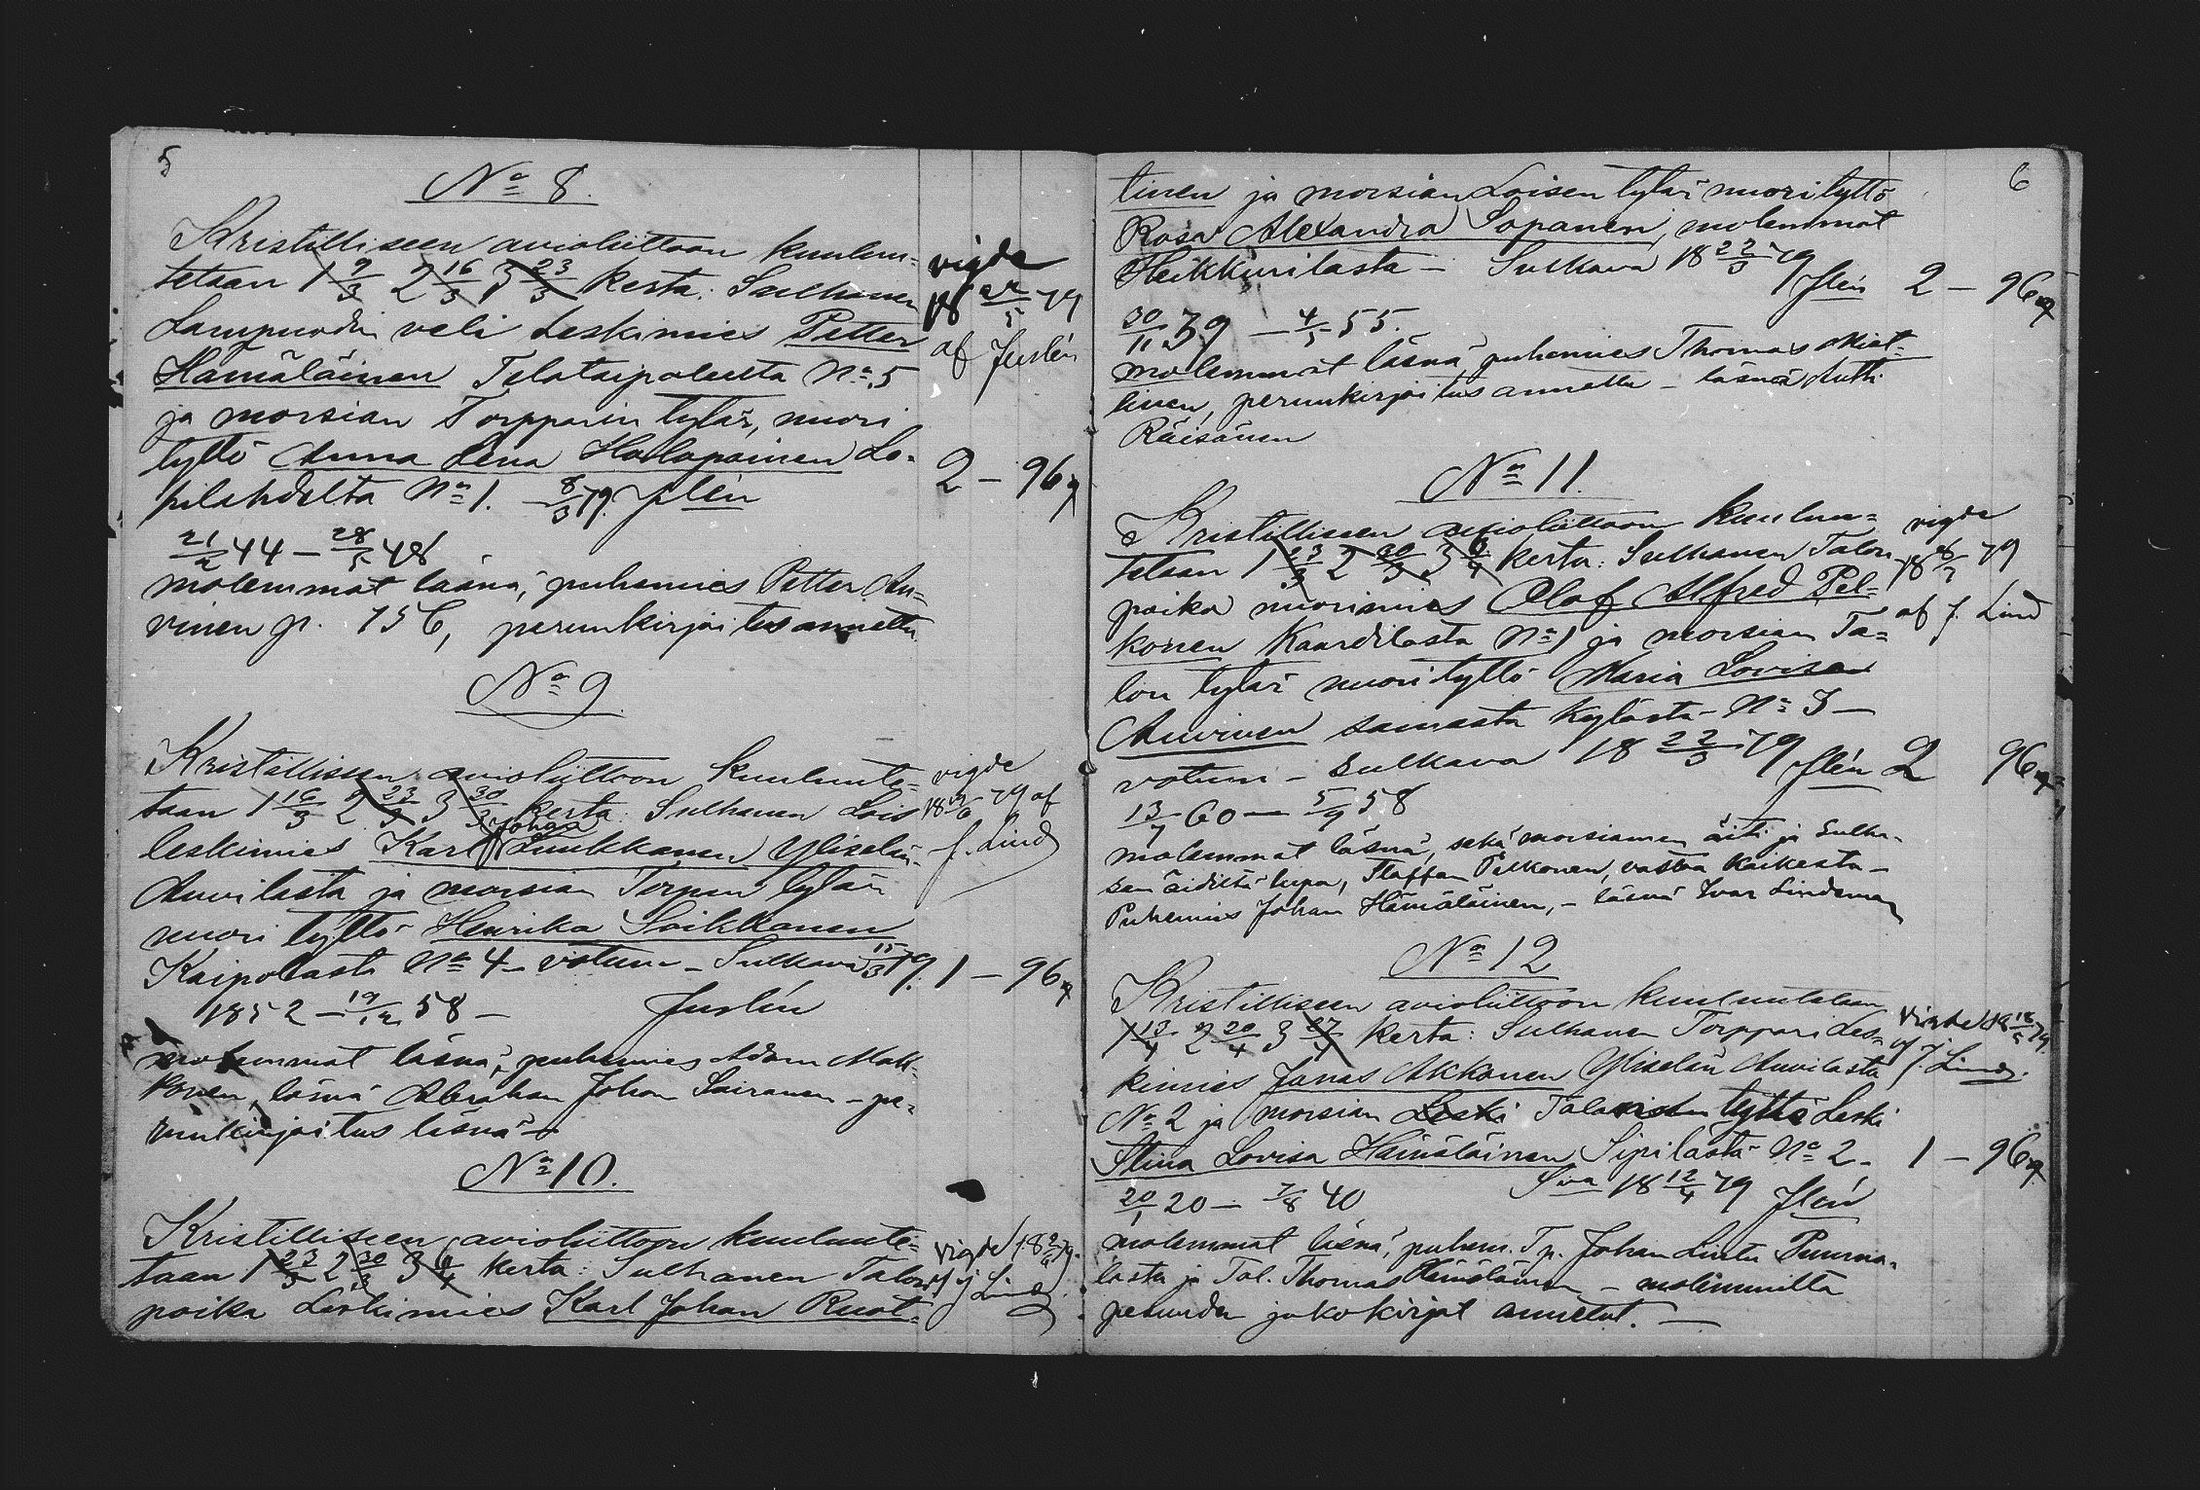 5
No 8.
Kristilliseen avioliittoon kuulu-
tetaan 1 9/3 2 16/3 3 23/3 kerta: Sulhanen
vigde
Lampuodin veli Leskimies Petter
18 /5 79
Hämäläinen Telataipaleelta No 5
af Juslén
ja morsian Torpparin tytär, nuori
tyttö Anna Lena Halapainen Lo-
pilahdelta No 1. 8/3 79. Jlén
2 – 96
21/2 44 – 28/5 48
molemmat läsnä, puhemies Petter Au-
vinen p. 156, perunkirjoitus annettu
No 9
Kristilliseen avioliittoon kuulute-
vigde
taan 1 16/3 2 23/3 3 30/3 kerta: Sulhanen Lois
18 /6 79 af
Johan
leskimies Karl Luukkanen Yliselän
J. Lind
Auvilasta ja morsian Torpan tytär
nuori tyttö Henrika Soikkanen
Kaipolasta No 4 – votum – Sulkava 15/3 79.
1 – 96
1852 – 19/12 58 –
Juslén
molemmat läsnä, puhemies Adam Mak-
konen, läsnä Abraham Johan Sairanen – pe-
runkirjoitus läsnä –
No 10.
Kristilliseen avioliittoon kuulute-
vigde 18 2/6 79.
taan 1 23/3 2 30/3 3 6/4 kerta: Sulhanen Talon
af J. Lind
poika Leskimies Karl Johan Ruot-
6
tinen ja morsian Loisen tytär nuori tyttö
Rosa Alexandra Sopanen, molemmat
Heikkurilasta – Sulkava 18 22/3 79
Jlén 2 – 96
30/11 39 – 4/5 55.
molemmat läsnä, puhemies Thomas Miet-
tinen, perunkirjoitus annettu – läsnä Antti
Räisänen
No 11.
Kristilliseen avioliittoon kuulu-
vigde
tetaan 1 23/3 2 30/3 3 6/4 kerta: Sulhanen Talon
18 /7 79
poika nuorimies Olof Alfred Pel-
af J. Lind
konen Kaardilasta No 1 ja morsian Ta-
lon tytär nuori tyttö Maria Lovisa
Auvinen samasta kylästä – No 3 –
votum – Sulkava 18 22/3 79
Jlén 2 96
13/7 60 – 5/9 58
molemmat läsnä, sekä morsiamen äiti ja Sulha-
sen äidiltä lupa, Staffan Pelkonen, vastaa kaikesta –
Puhemies Johan Hämäläinen, – läsnä Ivar Lindeman
No 12
Kristilliseen avioliittoon kuulutetaan
1 13/4 2 20/4 3 27/4 kerta: Sulhanen Torppari Les-
vigde 18 79.
kimies Jonas Akkanen Yliselän Auvilasta
af J. Lind.
No 2 ja morsian Leski Talon tyttö Leski
Stina Lovisa Hämäläinen Sipilästä No 2.
1 – 96
20/1 20 – 7/8 40
Sva 18 12/4 79 Jlén
molemmat läsnä, puhem. Tp. Johan Lintu Puurna-
lasta ja Tal. Thomas Hämäläinen – molemmilta
perunden jakokirjat annetut. –